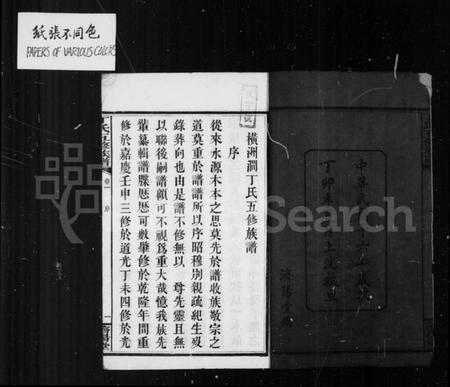 紙張不同色
PAPERS OF VARIOUS COLORS
橫洲澗丁氏五修族譜
序
從來水源木本之思莫先於譜收族敬宗之
道莫重於譜譜所以序昭穆別親疏紀生歿
錄葬向也由是譜不修無以 尊先靈且無
以聯後嗣譜顧可不視為重大哉憶我族先
輩纂輯譜牒歷歷可數肇修於乾隆年間重
修於嘉慶壬申三修於道光丁未四修於光
丁氏五修族譜 卷一 序 一 濟陽堂
中華民國十六年歲次
丁卯季
濟陽堂
SearchStock